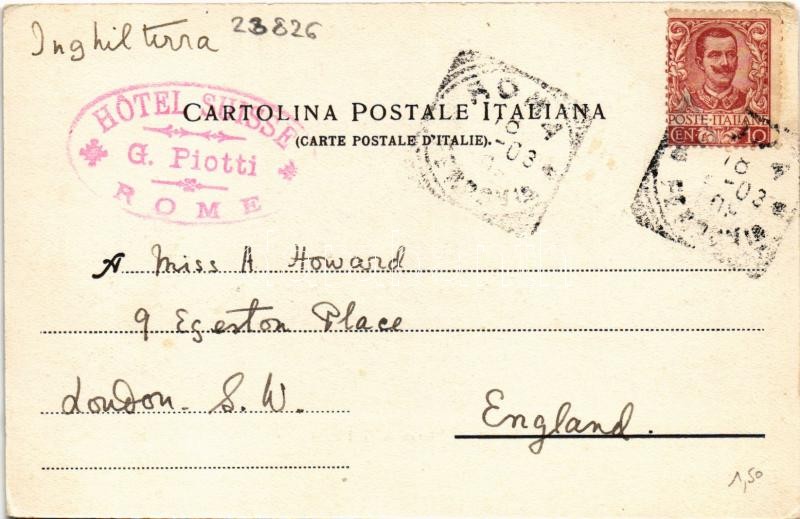 Inghilterra 23826
HÔTEL SUISSE
G. Piotti
ROME
CARTOLINA POSTALE ITALIANA
(CARTE POSTALE D'ITALIE).
ROMA
18
-03
POSTE·ITALIANE
CEN. 10
ROMA
18
-03
A Miss H Howard
9 Egerton Place
London. S. W.
England.
1,50